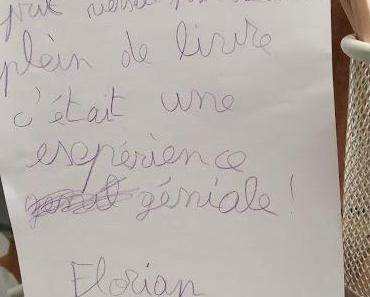 plein de livre
c'était une
expérience
géniale !
Florian